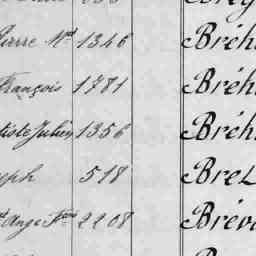 Pierre Mie 1346 Bréh
François 1781 Bréh
tiste Julien 1356 Bréh
seph 518 Brel
Ange 2208 Brév